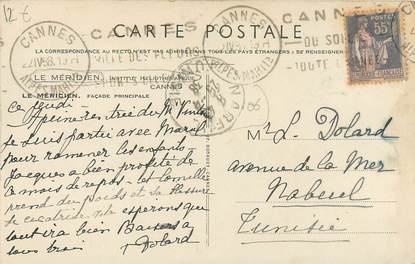 12€
CANNES
CARTE POSTALE
LA CORRESPONDANCE AU RECTO N'EST PAS ADMISE DANS TOUS LES PAYS ÉTRANGERS
SE RENSEIGNER
CANNES
ALPES-MARITIMES
CANNES
ALPES-MARITIMES
CANNES
DU SOLEIL
TOUTE L'ANNÉE
VILLE DES FLEURS
55c
LE MÉRIDIEN, INSTITUT HÉLIOTHÉRAPIQUE
CANNES
LE MÉRIDIEN, FAÇADE PRINCIPALE
ce jeudi
à peine rentrée du
je suis partie avec Marcel
pour ramener les enfants
Jacques a bien profité de
2 mois de repos - les
prend du poids et sa blessure
se cicatrise vite espérons que
tout ira bien Baisers à
tous trois
Dolard
Mr L. Dolard
avenue de la Mer
Nabeul
Tunisie